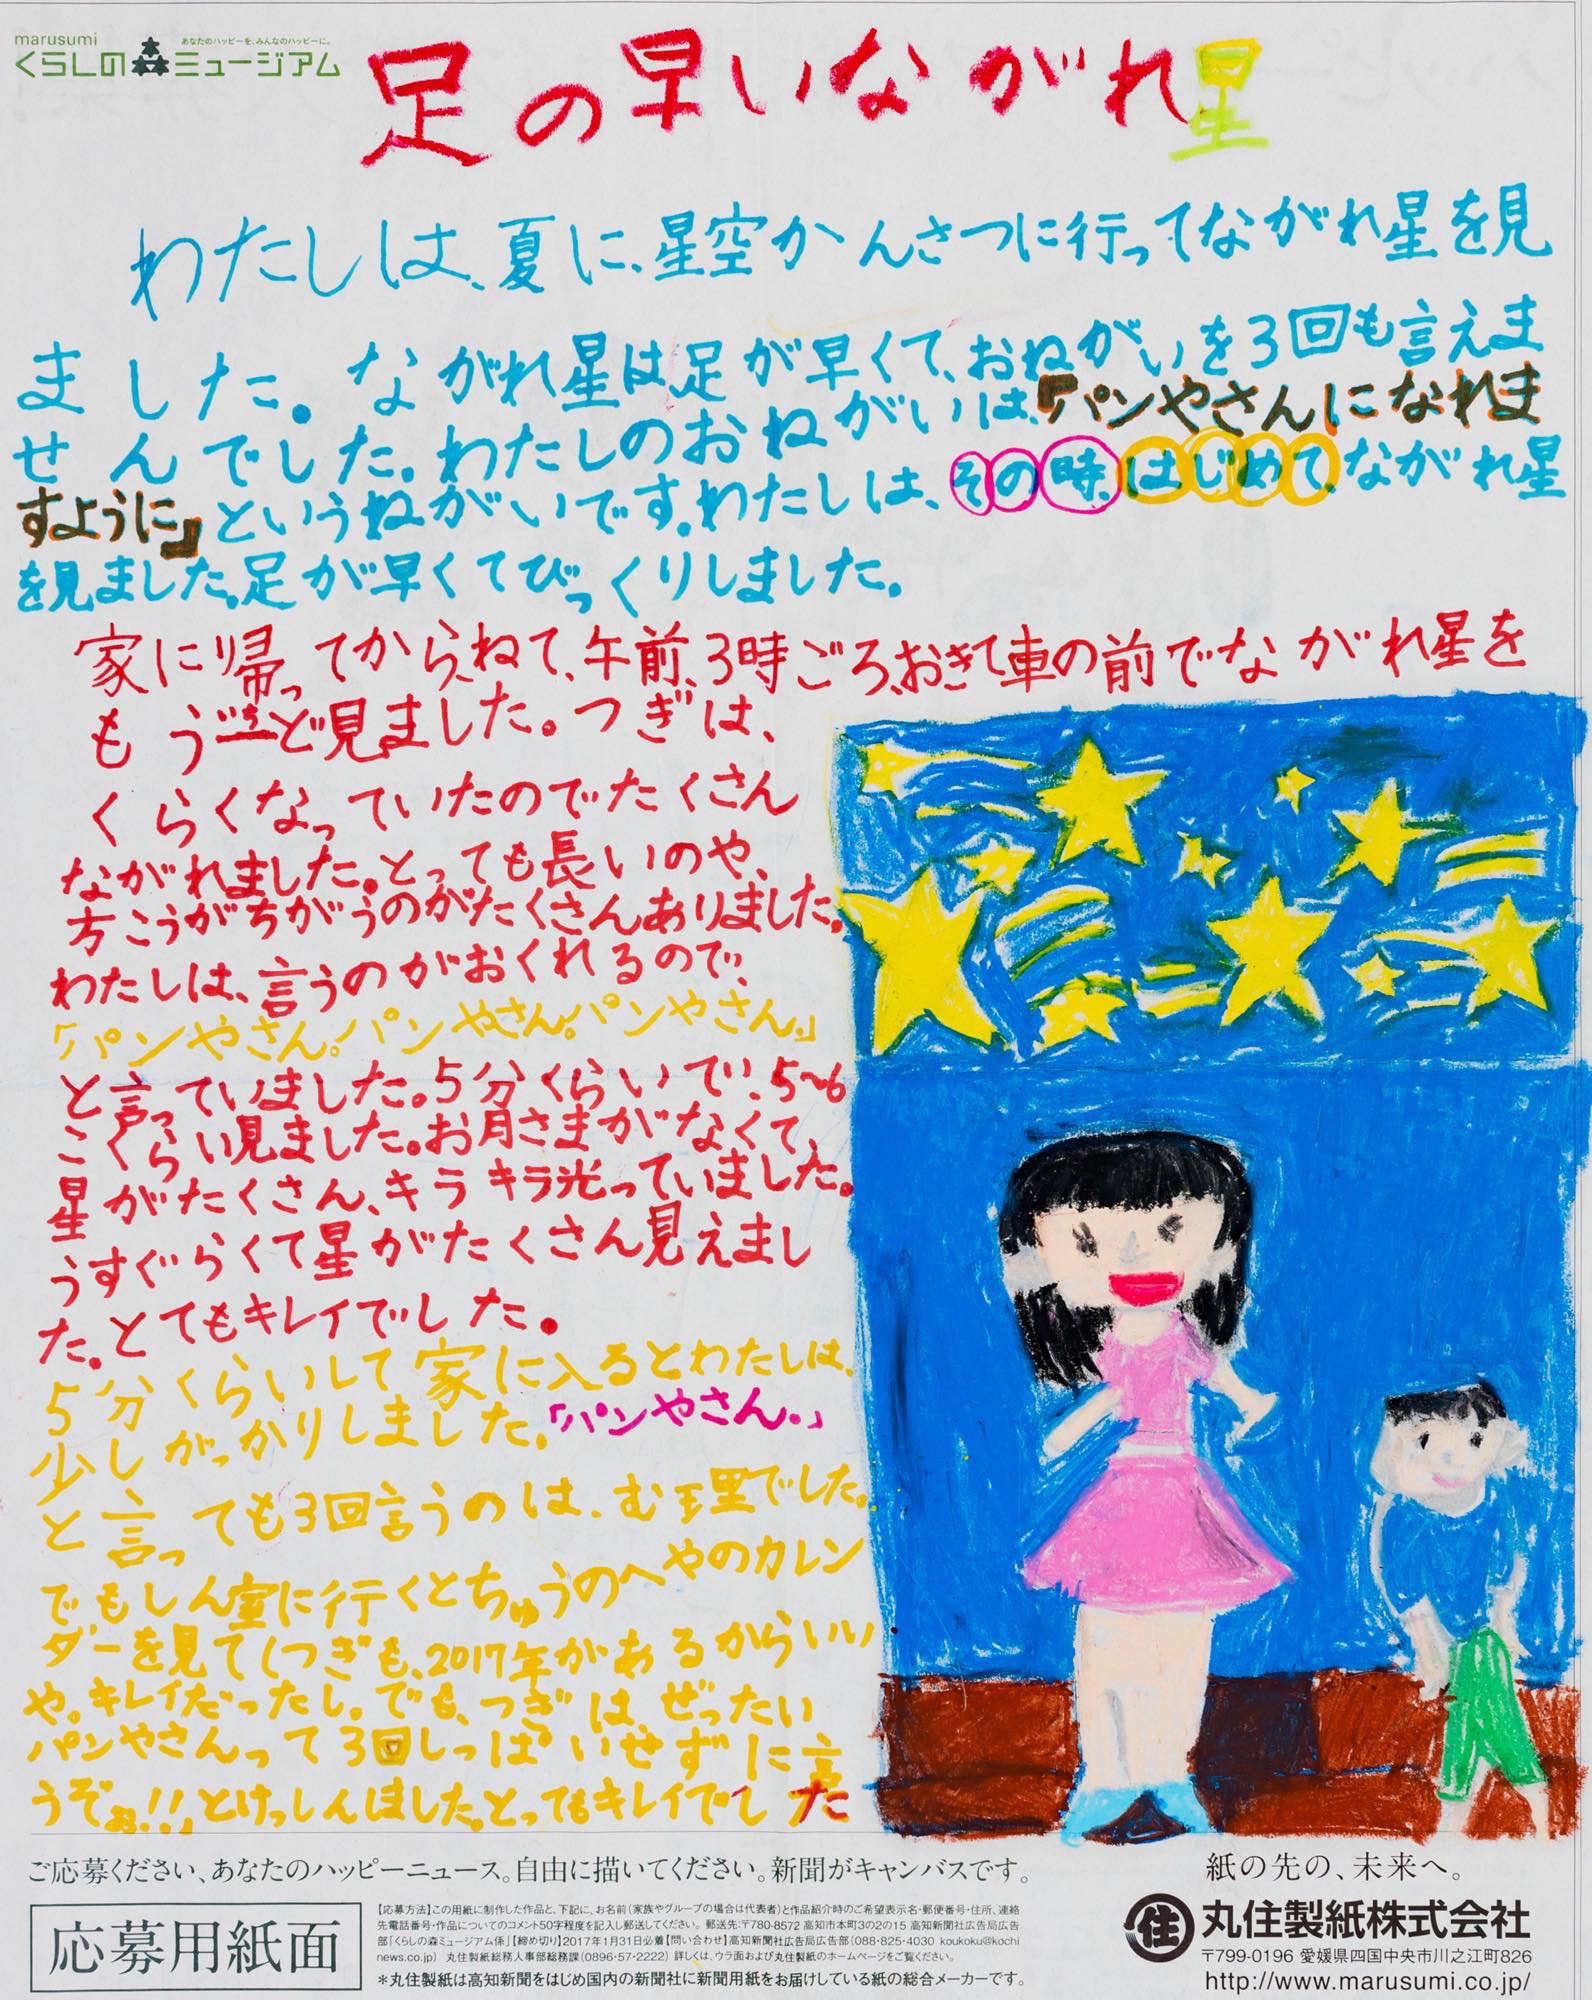 marusumi
あなたのハッピーを、みんなのハッピーに。
くらしの森ミュージアム
足の早いながれ星
わたしは、夏に、星空かんさつに行ってながれ星を見
ました。ながれ星は足が早くて、おねがいを3回も言えま
せんでした。わたしのおねがいは、「パンやさんになれま
すように」というねがいです。わたしは、その時、はじめて、ながれ星
を見ました。足が早くてびっくりしました。
家に帰ってから、ねて、午前、3時ごろ、おきて車の前でながれ星を
もういちど見ました。つぎは、
くらくなっていたのでたくさん
ながれました。とっても長いのや、
方こうがちがうのがたくさんありました。
わたしは、言うのがおくれるので、
「パンやさん。パンやさん。パンやさん。」
と言っていました。5分くらいで、5~6
こくらい見ました。お月さまがなくて、
星がたくさん、キラキラ光っていました。
うすぐらくて星がたくさん見えまし
た。とてもキレイでした。
5分くらいして家に入るとわたしは、
少しがっかりしました。「パンやさん。」
と言っても3回言うのは、む理でした。
でもしん室に行くとちゅうのへやのカレン
ダーを見て「つぎも、2017年があるからいい
や。キレイだったし。でも、つぎは、ぜったい
パンやさんって3回しっぱいせずに言
うぞぉ!!」とけっしんしました。とってもキレイでした
ご応募ください、あなたのハッピーニュース。自由に描いてください。新聞がキャンバスです。
応募用紙面
【応募方法】この用紙に制作した作品と、下記に、お名前(家族やグループの場合は代表者)と作品紹介時のご希望表示名・郵便番号・住所、連絡
先電話番号・作品についてのコメント50字程度を記入し郵送してください。郵送先:〒780-8572 高知市本町3の2の15 高知新聞社広告局広告
部「くらしの森ミュージアム係」【締め切り】2017年1月31日必着【問い合わせ】高知新聞社広告局広告部(088・825・4030 koukoku@kochi
news.co.jp) 丸住製紙総務人事部総務課(0896・57・2222) 詳しくは、ウラ面および丸住製紙のホームページをご覧ください。
*丸住製紙は高知新聞をはじめ国内の新聞社に新聞用紙をお届けしている紙の総合メーカーです。
紙の先の、未来へ。
住 丸住製紙株式会社
〒799-0196 愛媛県四国中央市川之江町826
http://www.marusumi.co.jp/